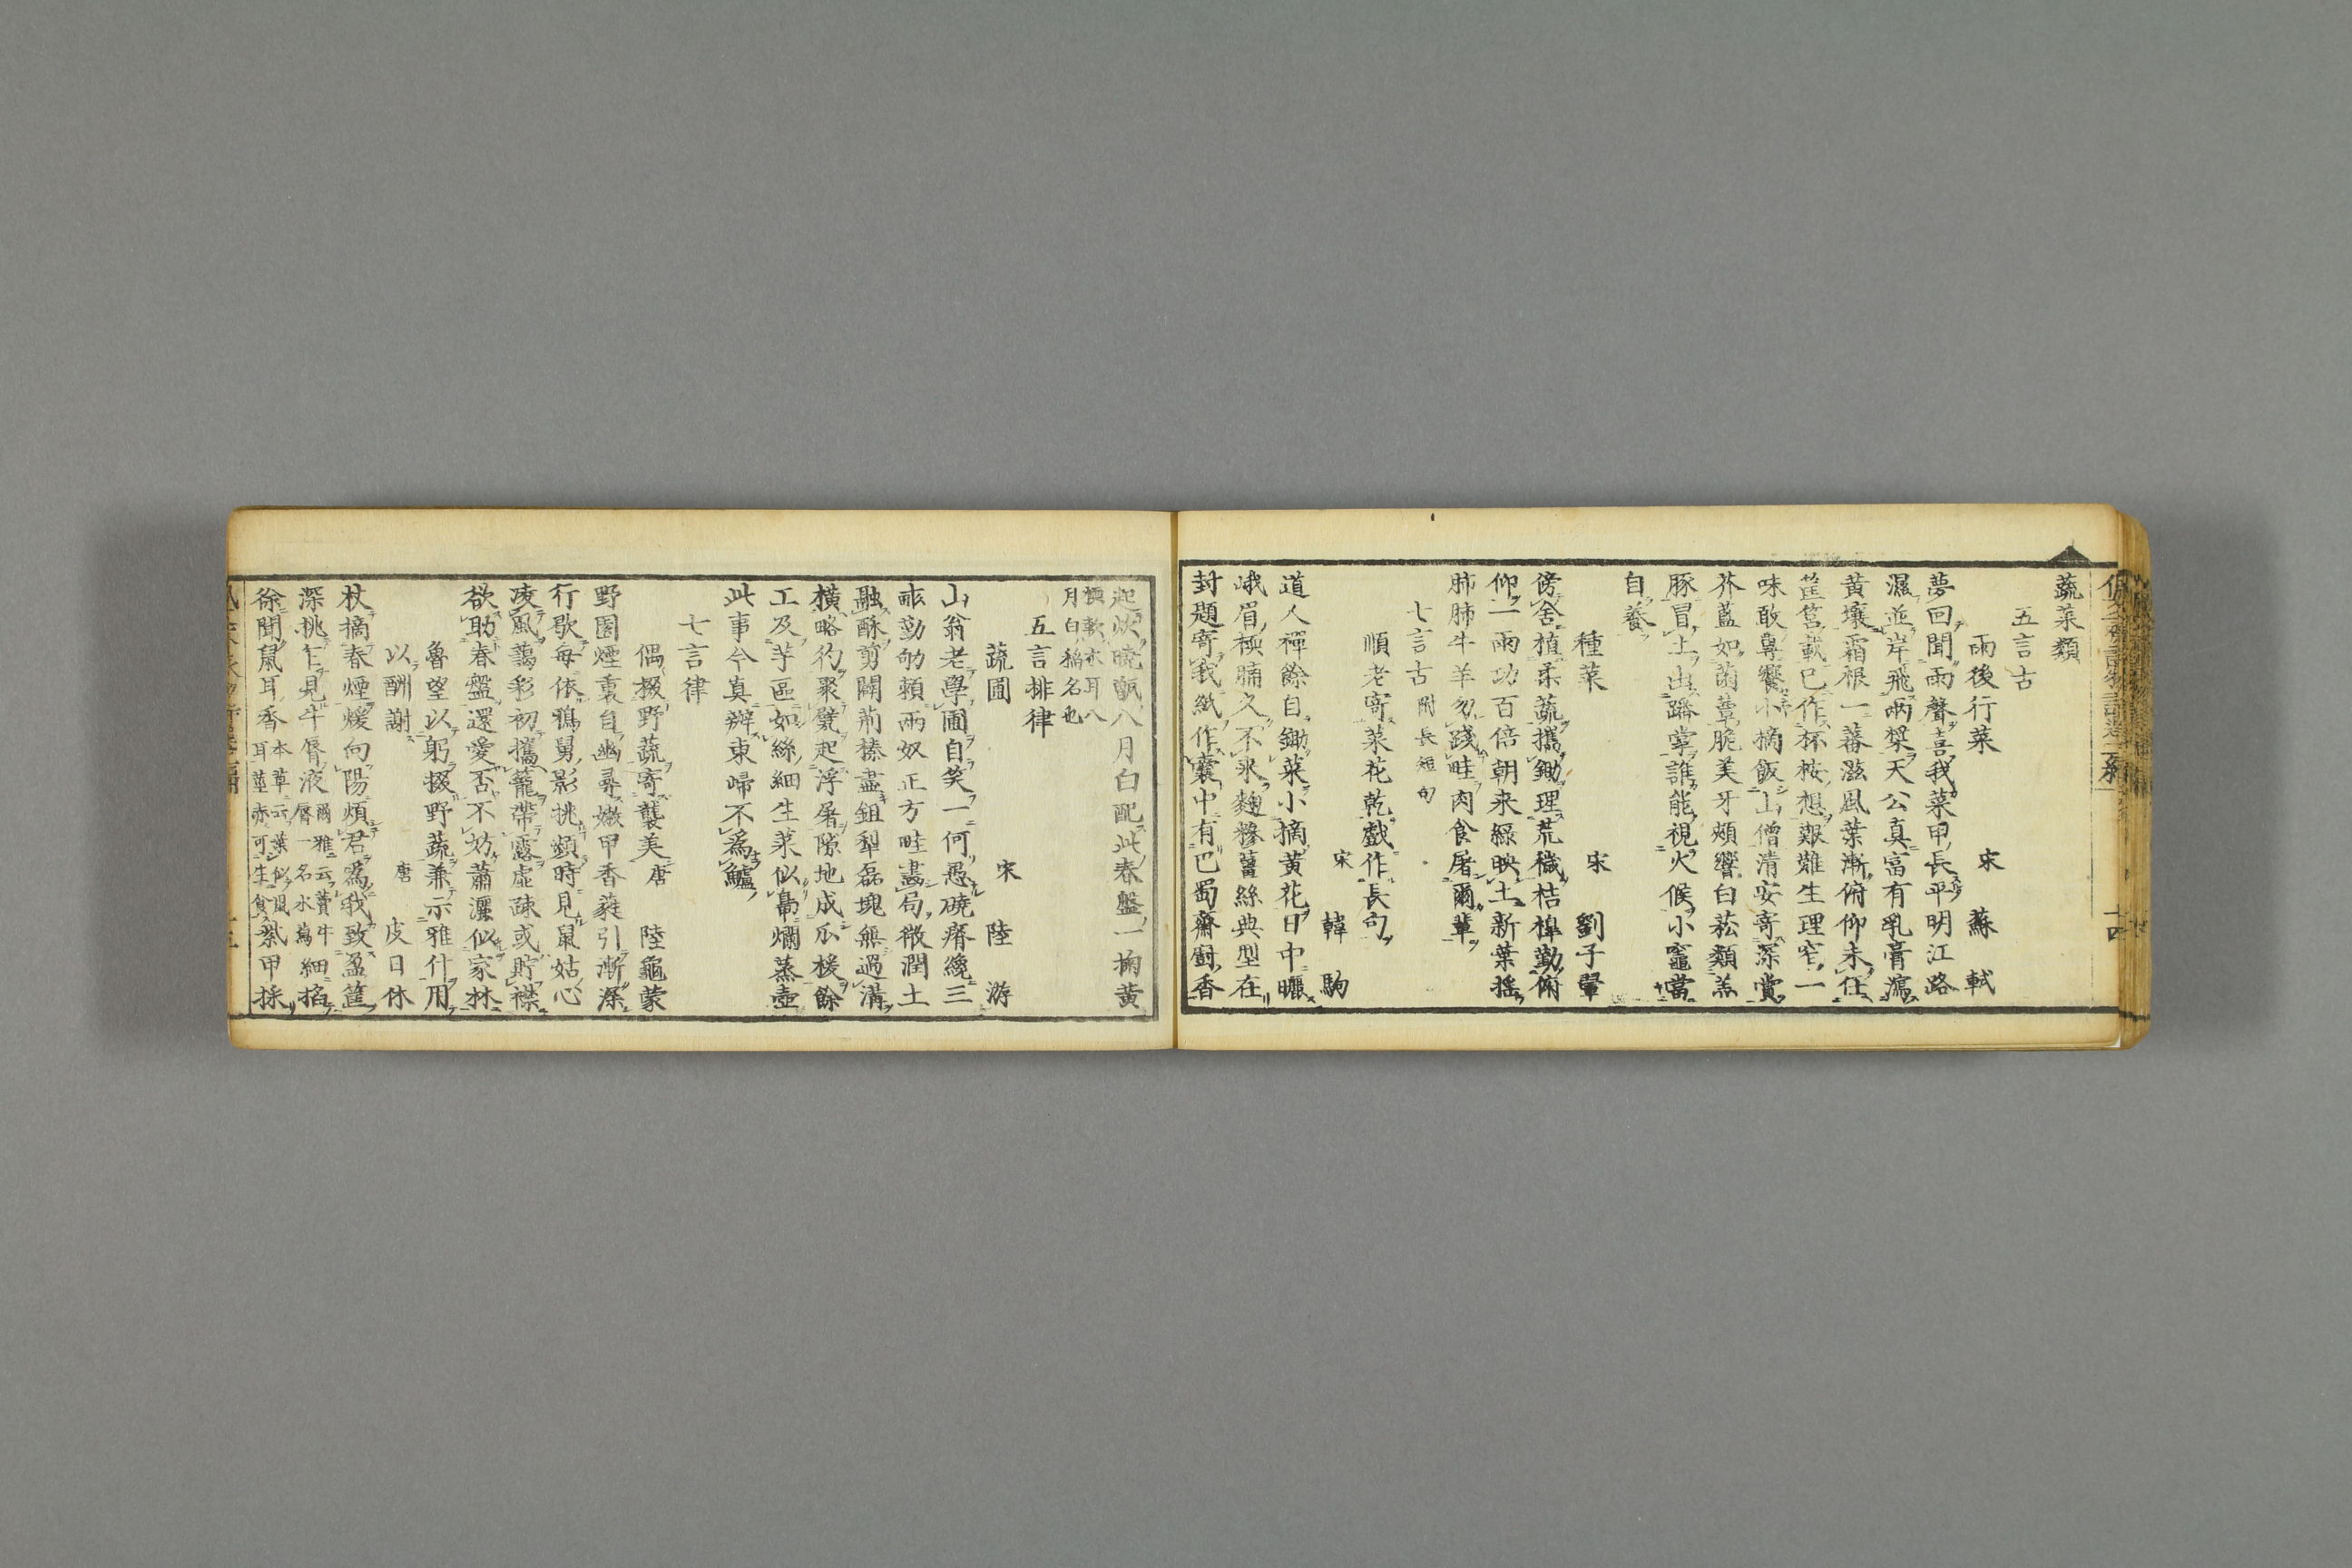 蔬菜類
五言古
雨後行菜 宋 蘇軾
夢回聞雨聲喜我菜甲長平明江路
濕並岸飛兩槳天公真富有乳膏瀉
黃壤霜根一蕃滋風葉漸俯仰未任
筐筥載已作杯桉想艱難生理窄一
味敢專饗小摘飯山僧清安寄深賞
芥藍如菌蕈脆美牙頰響白菘類羔
豚冒土出蹯掌誰能視火候小竈當
自養
種菜 宋 劉子翬
傍舍植柔蔬攜鋤理荒穢桔槔勤俯
仰一雨功百倍朝来綠映土新葉搖
肺肺牛羊勿踐畦肉食屠爾輩
七言古 附長短句
順老寄菜花乾戲作長句
宋 韓駒
道人禪餘自鋤菜小摘黃花日中曬
峨眉楧腩久不来麴糝薑絲典型在
封題寄我紙作囊中有巴蜀齋厨香
起炊曉甑八月白配此春盤一掬黃
楧軟木耳八
月白稻名也
五言排律
蔬圃 宋 陸游
山翁老學圃自笑一何愚磽瘠纔三
畝勤劬賴兩奴正方畦畫局微潤土
融酥剪闢荊榛盡鉏犁磊塊無過溝
橫略彴聚甓起浮屠隙地成瓜援餘
工及芋區如絲細生菜似鳧爛蒸壺
此事今真辦東歸不為鱸
七言律
偶掇野蔬寄襲美 唐 陸龜蒙
野園煙裏自幽尋嫩甲香蕤引漸深
行歌每依鴉舅影挑頻時見鼠姑心
凌風藹彩初攜籠帶露虛疎或貯襟
欲助春盤還愛否不妨蕭灑似家林
魯望以躬掇野蔬兼示雅什用
以酬謝 唐 皮日休
杖摘春煙煖向陽煩君為我致盈筐
深挑乍見牛脣液爾雅云藚牛脣一名水蕮細掐
徐聞鼠耳香本草云葉似鼠耳莖亦可生食紫甲採